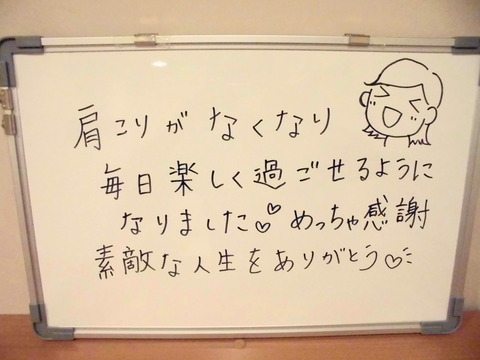 肩こりがなくなり
毎日楽しく過ごせるように
なりました♡♡めっちゃ感謝
素敵な人生をありがとう♡